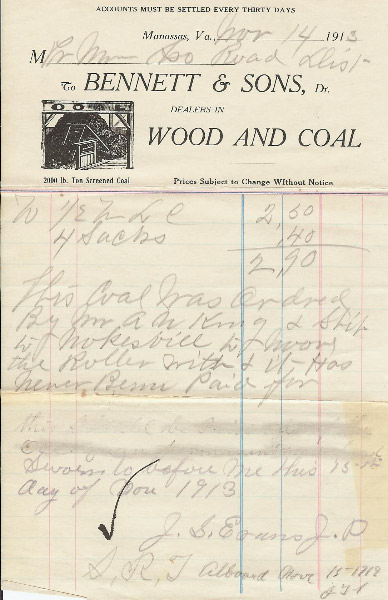 ACCOUNTS MUST BE SETTLED EVERY THIRTY DAYS
Manassas, Va., Nov 14 1913
M Road Dist
To BENNETT & SONS, Dr.
DEALERS IN
WOOD AND COAL
COAL
2000 lb. Ton Screened Coal
Prices Subject to Change Without Notice
2,50
4 Sacks ,40
2,90
This Coal Was Ordred
By Mr A N King & Ship
to Nokesvill to Move
the Roller With & it Has
Never Benn Paid for
Sworn to before me this 15-th
day of Nov 1913
J. S. Evans J. P
S, R, T